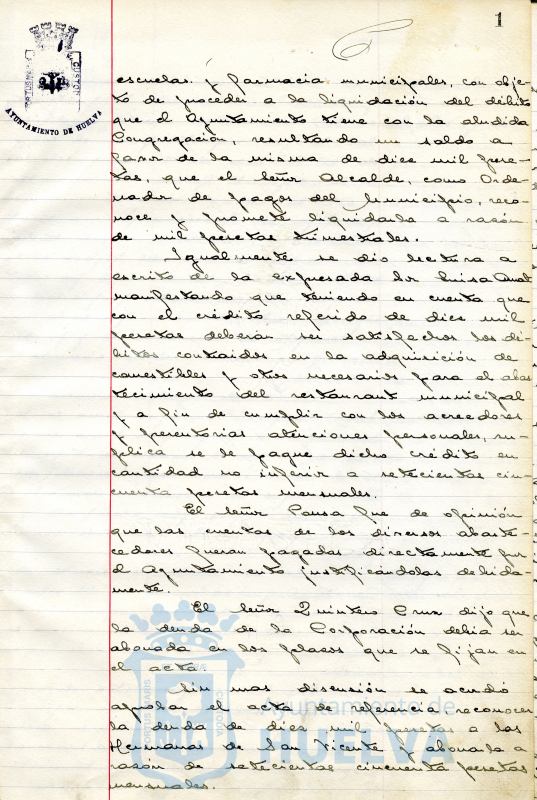 1
AYUNTAMIENTO DE HUELVA
escuelas y farmacia municipales, con obje-
to de proceder a la liquidación del débito
que el Ayuntamiento tiene con la aludida
Congregación, resultando un saldo a
favor de la misma de diez mil pese-
tas, que el Señor Alcalde, como Orde-
nador de pagos del Municipio, reco-
noce y promete liquidarla a razón
de mil pesetas trimestrales.
Igualmente se dio lectura a
escrito de la expresada Sor Luisa
manifestando que teniendo en cuenta que
con el crédito referido de diez mil
pesetas deberán ser satisfechos los dé-
bitos contraidos en la adquisición de
comestibles y otros necesarios para el abas-
tecimiento del restaurant municipal
y a fin de cumplir con los acreedores
y perentorias atenciones personales, su-
plica se le pague dicho crédito en
cantidad no inferior a setecientas cin-
cuenta pesetas mensuales.
El Señor Ponsa fue de opinión
que las cuentas de los diversos abaste-
cedores fueran pagadas directamente por
el Ayuntamiento justificándolas debida-
mente.
El Señor Quintero Cruz dijo que
la deuda de la Corporación debia ser
abonada en los plazos que se fijan en
el acta.
Sin mas discusión se acordó
aprobar el acta de referencia, reconocer
la deuda de diez mil pesetas a las
Hermanas de San Vicente y abonarla a
razón de setecientas cincuenta pesetas
mensuales.
PORTUS MARIS
CUSTODIA
Ayuntamiento de
HUELVA